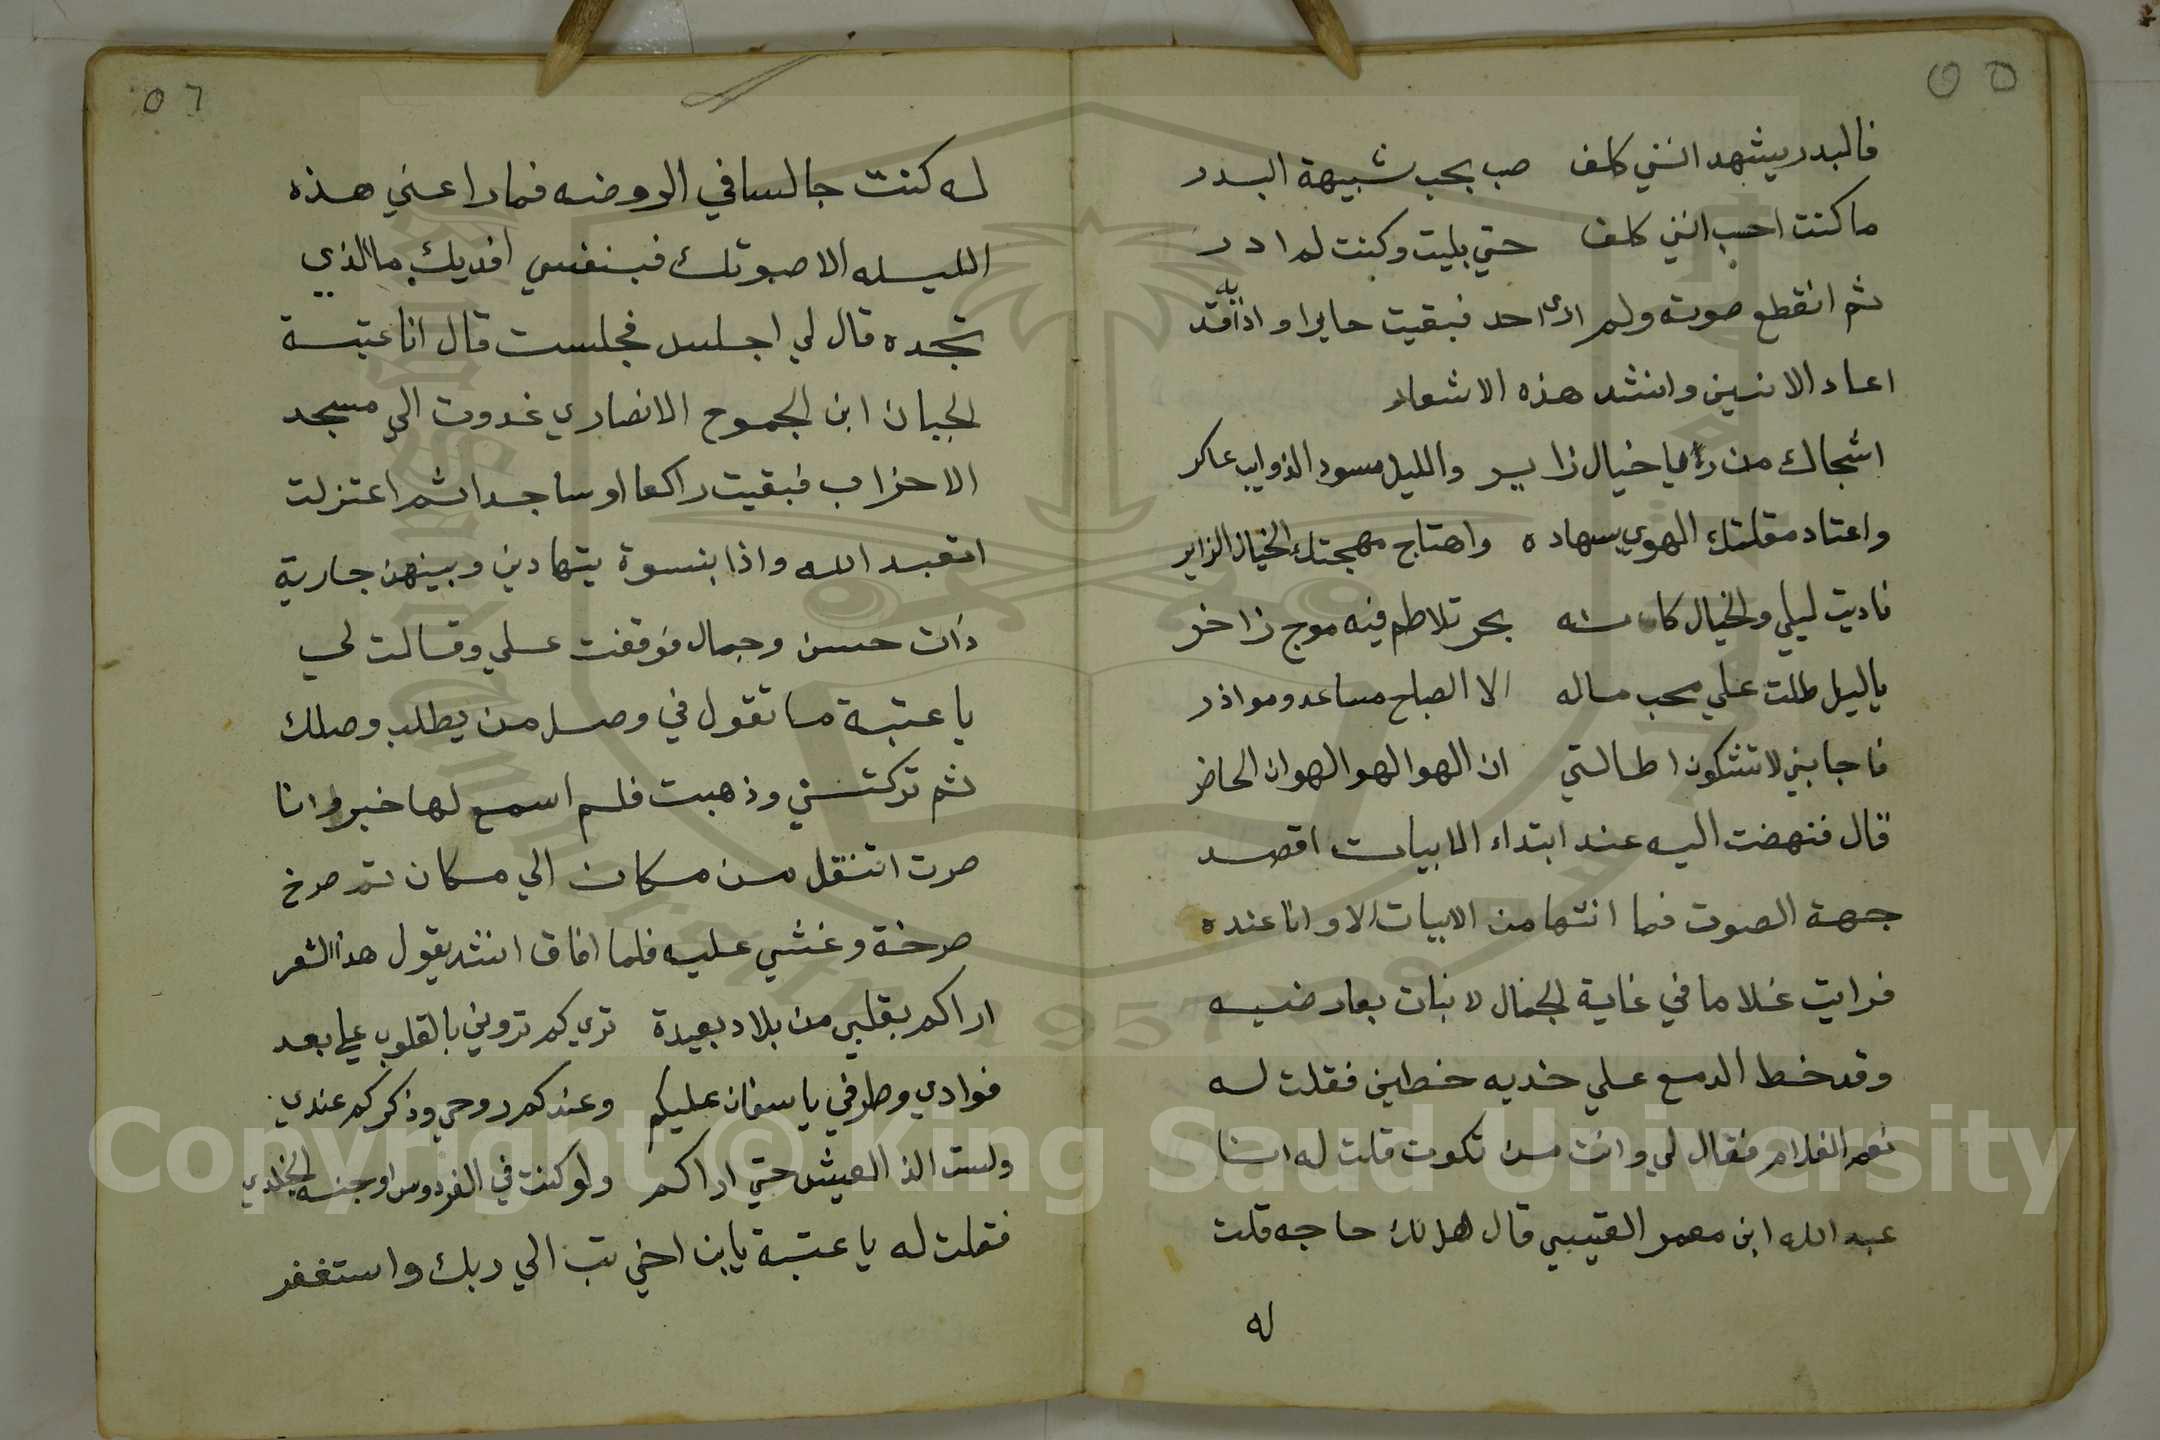 ٥٥
فالبدر يشهد انني كلف صب بحب شبيهة البدر
ما كنت احسب انني كلف حتي بليت وكنت لم ادر
ثم انقطع صوته ولم ارى احد فبقيت حايرا واذا به قد
اعاد الانين وانشد هذه الاشعار
اشجاك من ريا خيال زاير والليل مسود الذوايب عاكر
واعتاد مقلتك الهوي بسهاده واهتاج مهجتك الخيال الزاير
ناديت ليلي والخيال كانه بحر تلاطم فيه موج زاخر
ياليل طلت علي محب ماله الا الصباح مساعد وموازر
فاجابني لا تشكون اطالتي ان الهوا لهو الهوان الحاضر
قال فنهضت اليه عند ابتداء الابيات اقصد
جهة الصوت فما انتها من الابيات الا وانا عنده
فرايت غلاما في غاية الجمال لا نبات بعارضيه
وقد خط الدمع علي خديه خطين فقلت له
نعم الغلام فقال لي وانت من تكون قلت له انا
عبد الله ابن معمر القيسي قال هل لك حاجه قلت
له
٥٦
له كنت جالسا في الروضه فما راعني هذه
الليله الا صوتك فبنفسي افديك ما الذي
تجده قال لي اجلس فجلست قال انا عتبة
الجبان ابن الجموح الانصاري غدوت الي مسجد
الاحزاب فبقيت راكعا او ساجدا ثم اعتزلت
اتعبد الله واذا بنسوة يتهادين وبينهن جارية
ذات حسن وجمال فوقفت علي وقالت لي
يا عتبة ما تقول في وصل من يطلب وصلك
ثم تركتني وذهبت فلم اسمع لها خبر وانا
صرت اتنقل من مكان الي مكان ثم صرخ
صرخة وغشي عليه فلما افاق انشد يقول هذا الشعر
اراكم بقلبي من بلاد بعيدة تري كم تروني بالقلوب علي بعد
فوادي وطرفي ياسفان عليكم وعندكم روحي وذكركم عندي
ولست الذ العيش حتي اراكم ولو كنت في الفردوس او جنه الخلدي
فقلت له يا عتبة يابن اخي تب الي ربك واستغفر
Copyright © King Saud University
1957